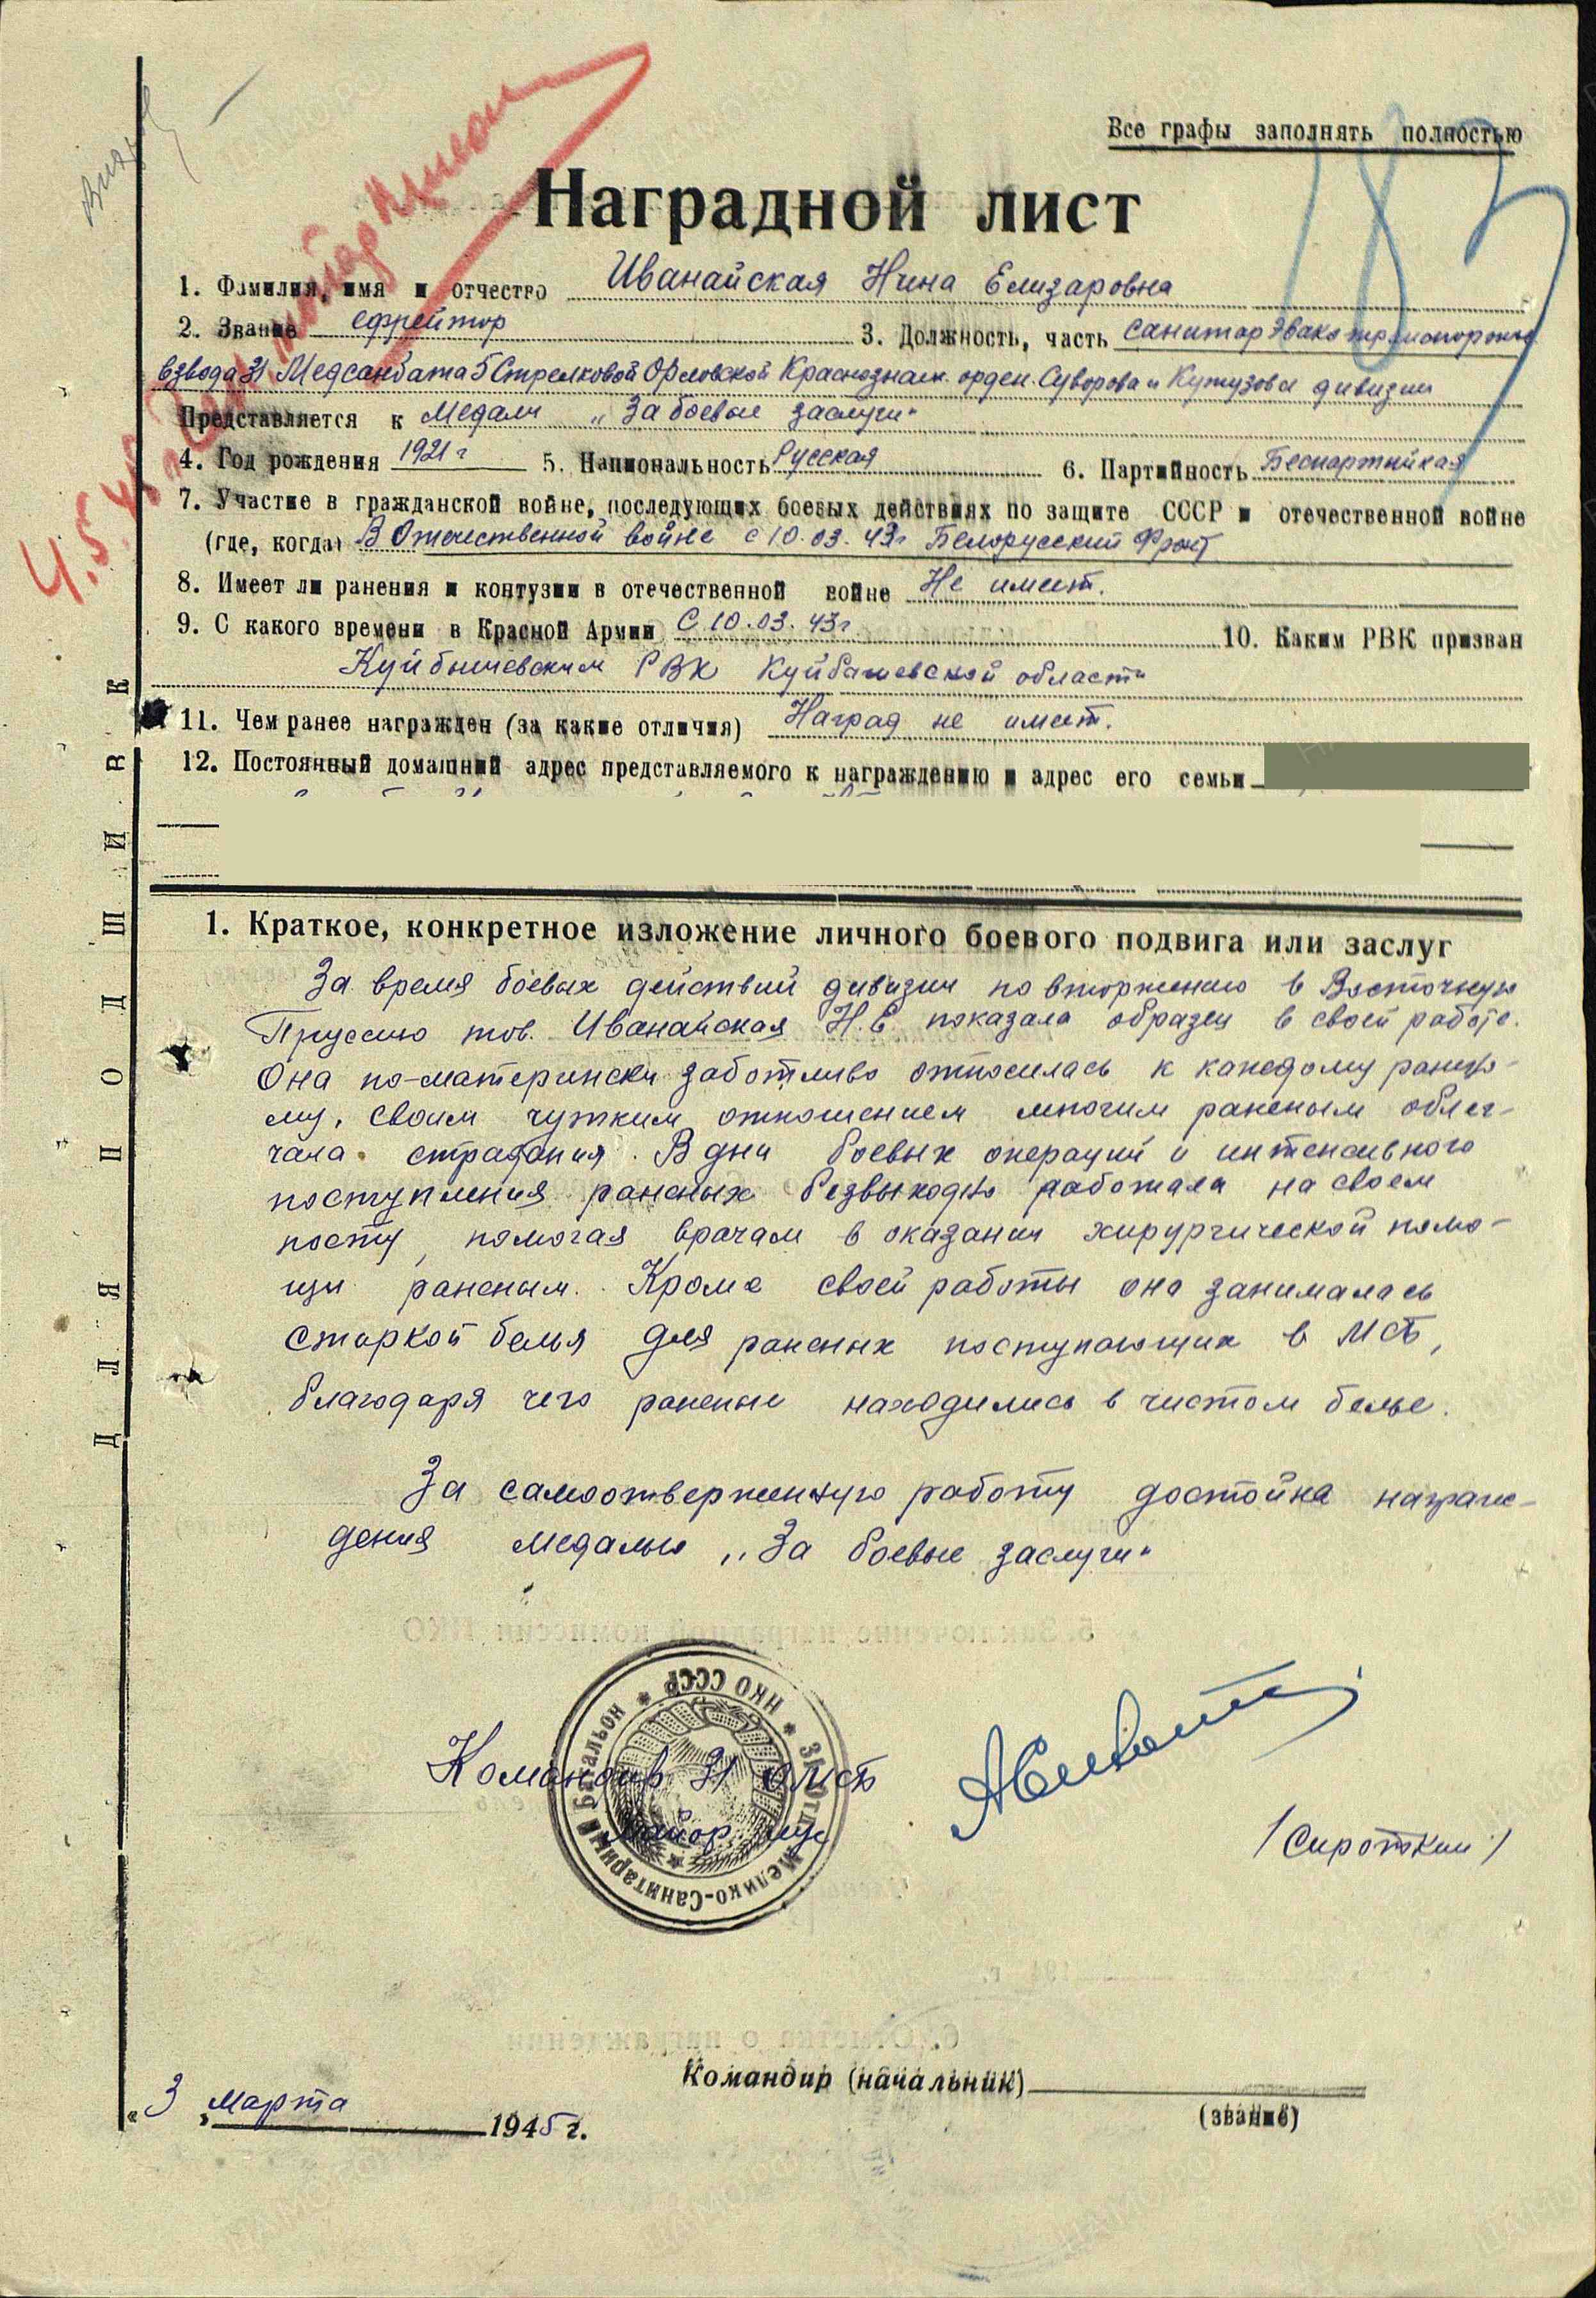 Все графы заполнять полностью
187
Наградной лист
1. Фамилия, имя и отчество Иванайская Нина Елизаровна
2. Звание ефрейтор 3. Должность, часть санитар эвакотранспортного
взвода 31 Медсанбата 5 Стрелковой Орловской Краснознам. орден. Суворова и Кутузова дивизии
Представляется к медали „За боевые заслуги“
4. Год рождения 1921 г 5. Национальность Русская 6. Партийность Беспартийная
7. Участие в гражданской войне, последующих боевых действиях по защите СССР и отечественной войне
(где, когда) В Отечественной войне с 10.03.43г Белорусский фронт
8. Имеет ли ранения и контузии в отечественной войне Не имеет.
9. С какого времени в Красной Армии С 10.03.43г 10. Каким РВК призван
Куйбышевским РВК Куйбышевской области
11. Чем ранее награжден (за какие отличия) Наград не имеет.
12. Постоянный домашний адрес представляемого к награждению и адрес его семьи
ДЛЯ ПОДШИВК
1. Краткое, конкретное изложение личного боевого подвига или заслуг
За время боевых действий дивизии по вторжению в Восточную
Пруссию тов. Иванайская Н.Е показала образец в своей работе.
Она по-матерински заботливо относилась к каждому ранено-
му, своим чутким отношением многим раненым облег-
чала страдания. В дни боевых операций и интенсивного
поступления раненых безвыходно работала на своем
посту, помогая врачам в оказании хирургической помо-
щи раненым. Кроме своей работы она занималась
стиркой белья для раненых поступающих в МСБ,
благодаря чего раненые находились в чистом белье.
За самоотверженную работу достойна награж-
дения медалью „За боевые заслуги“
Командир 31 ОМСБ
майор м/с
/Сироткин/
НКО СССР * 31 Отд. Медико-Санитарный батальон *
Командир (начальник)
(звание)
„3„ марта 1945 г.